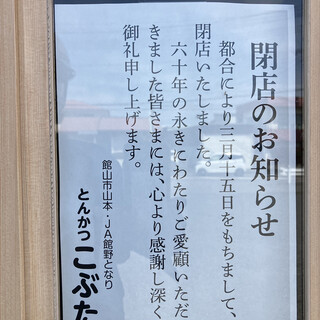 閉店のお知らせ
都合により三月十五日をもちまして、
閉店いたしました。
六十年の永きにわたりご愛顧いただ
きました皆さまには、心より感謝し深く
御礼申し上げます。
館山市山本・JA館野となり
とんかつ こぶた